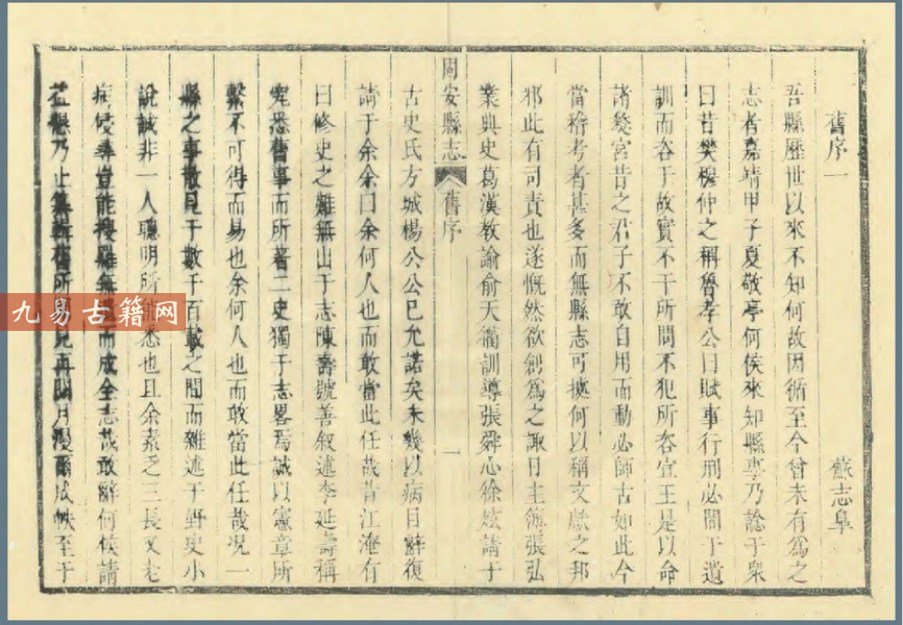 舊序一 蘇志皐
吾縣歷世以來不知何故因循至今曾未有為之
志者嘉靖甲子夏敬亭何侯來知縣事乃諗于衆
曰昔樊穆仲之稱魯孝公曰賦事行刑必問于遺
訓而咨于故實不干所問不犯所咨宣王是以命
諸夷宮昔之君子不敢自用而動必師古如此今
當稽考者甚多而無縣志可據何以稱文獻之邦
邪此有司責也遂慨然欲創為之諏日主簿張弘
業典史葛漢教諭俞天衢訓導張舜心徐炫請于
固安縣志 舊序 一
古史氏方城楊公公已允諾矣未幾以病目辭復
請于余余曰余何人也而敢當此任哉昔江淹有
曰修史之難無出于志陳壽號善叙述李延壽稱
究悉舊事而所著二史獨于志畧焉誠以憲章所
繫不可得而易也余何人也而敢當此任哉况一
縣之事散見于數千百載之間而雜述于野史小
說誠非一人聰明所能悉也且余素乏三長又老
病侵尋豈能搜羅無而成全志哉敢辭何侯請
益懇乃止纂輯舊所見再閱月漫爾成帙至于
九易古籍网